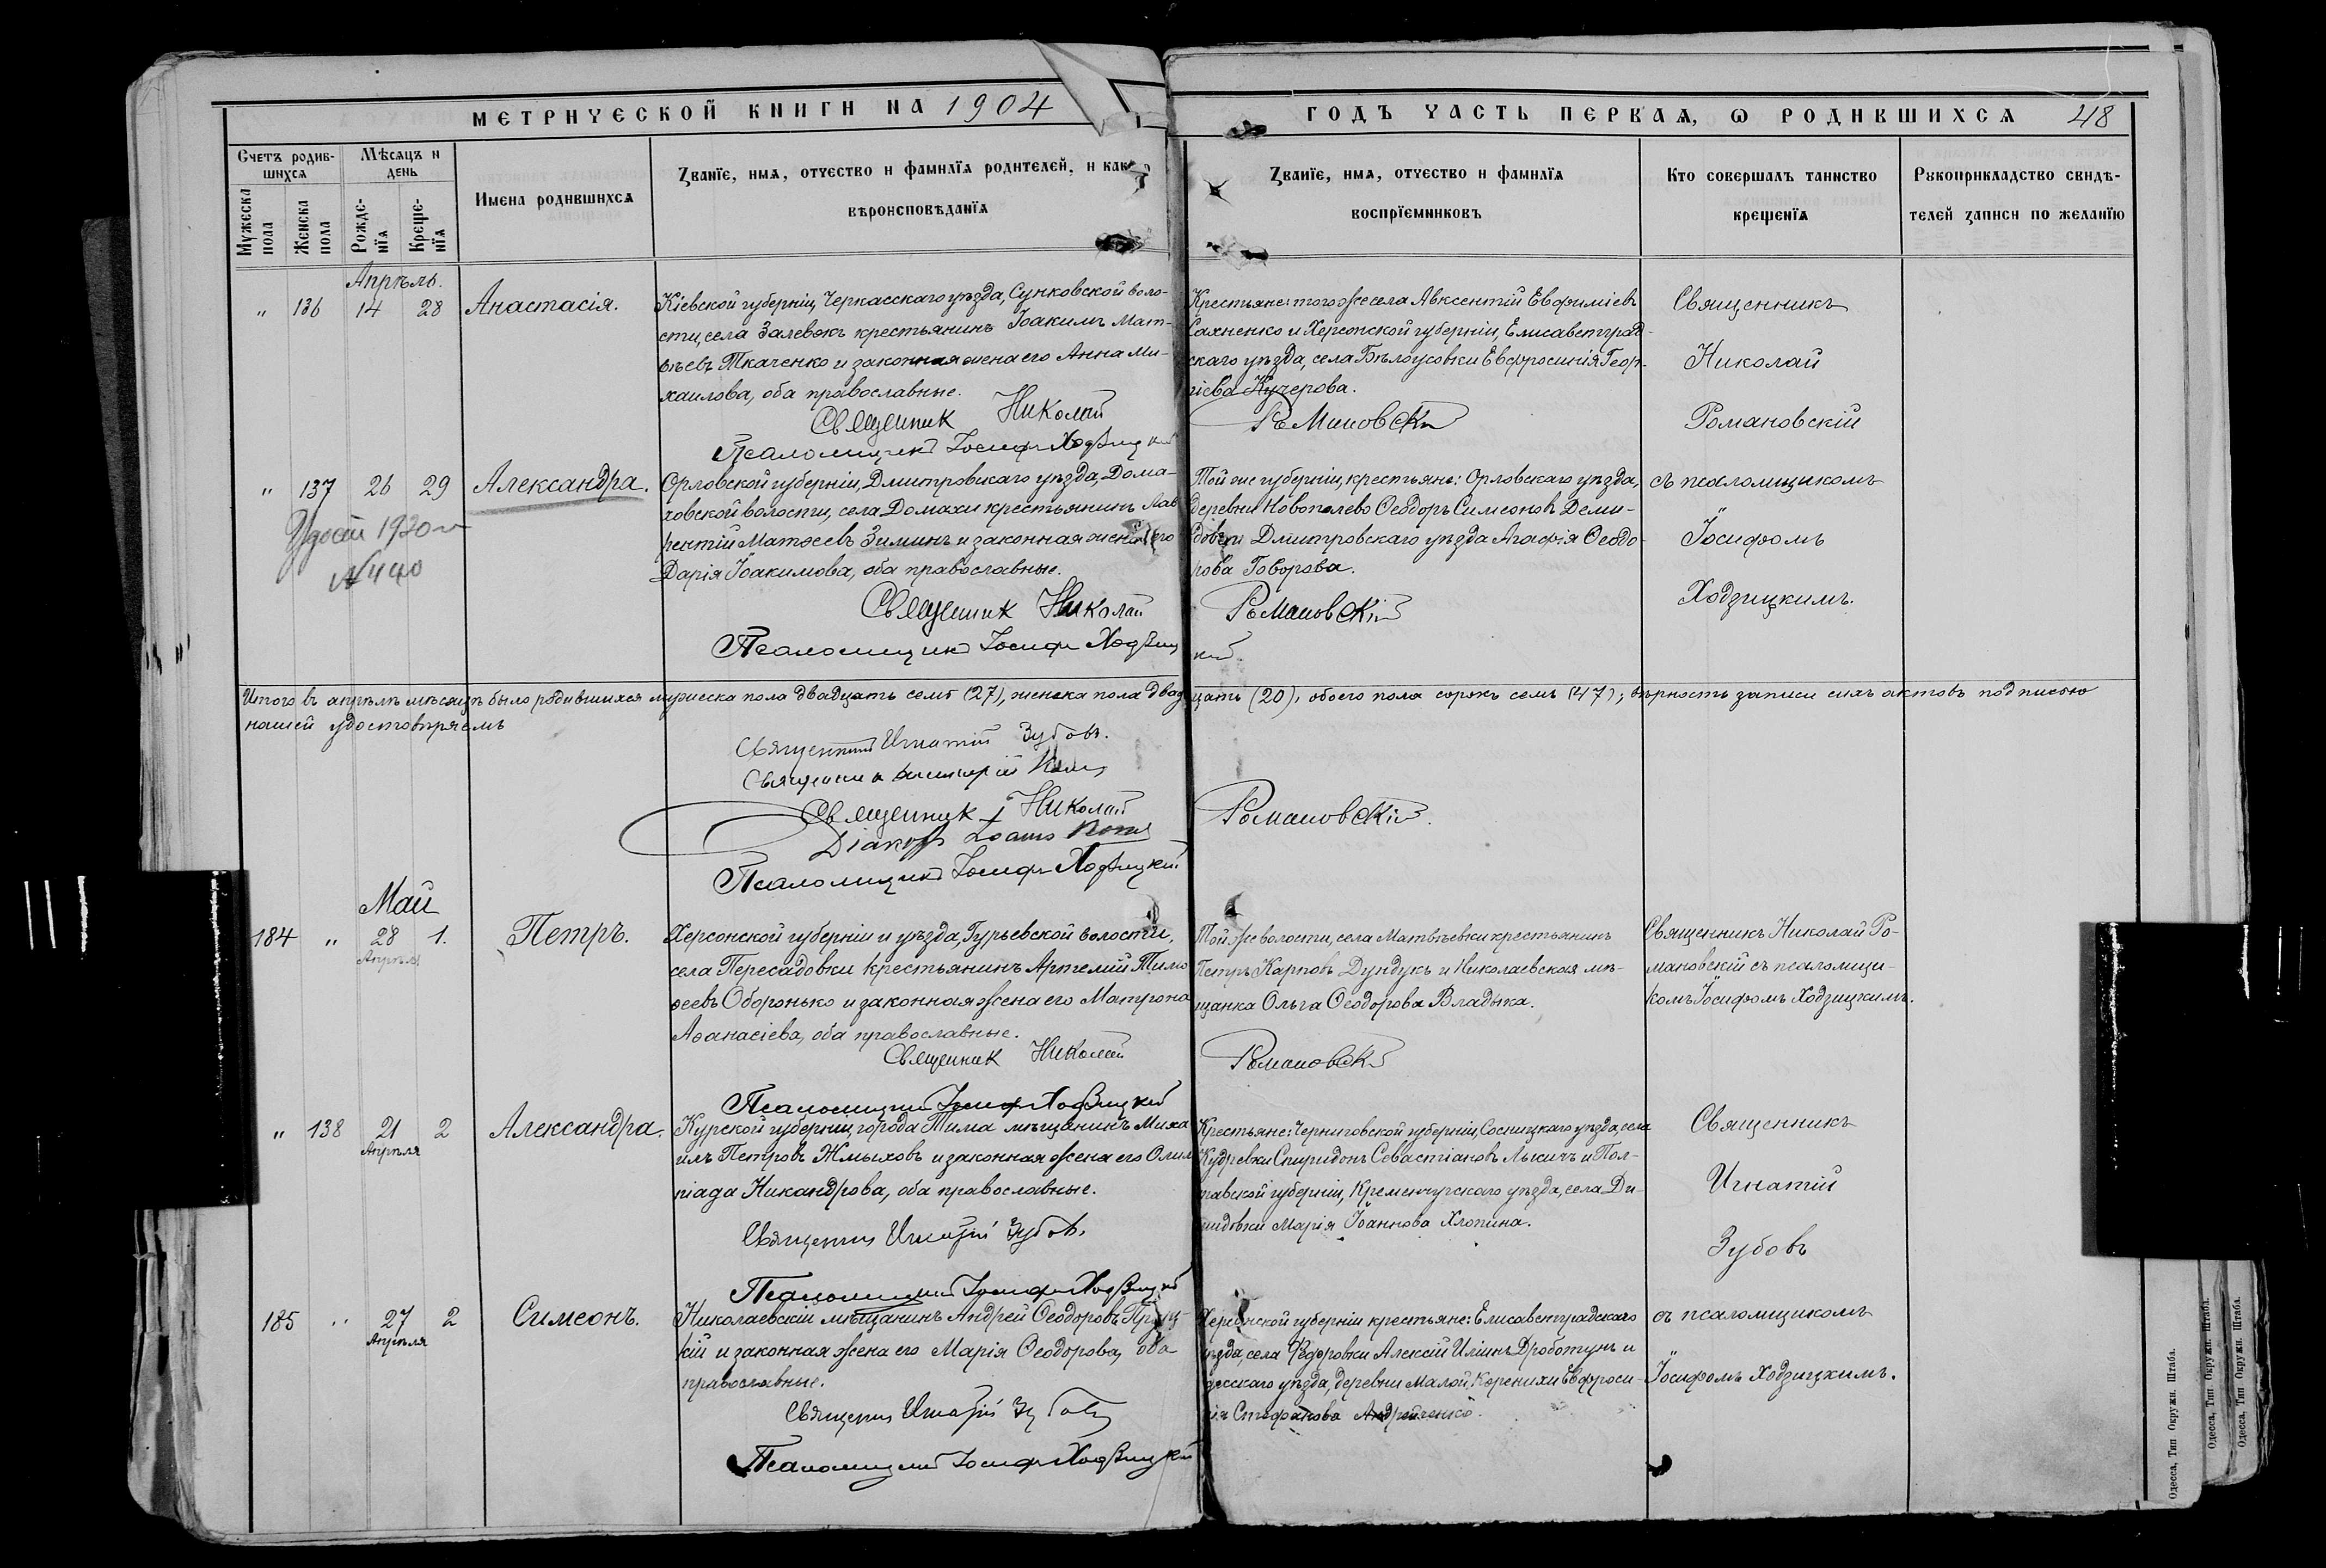 МЕТРИЧЕСКОЙ КНИГИ НА 1904
ГОДЪ ЧАСТЬ ПЕРВАѦ, Ѡ РОДИВШИХСѦ 48
Счетъ родив-
шихсѧ
Мѣсѧцъ и
день
Мужеска
пола
Женска
пола
Рожде-
нїѧ
Креще-
нїѧ
Имена родившихсѧ
Званїе, имѧ, отчество и фамилїѧ родителей, и как
вѣроисповѣданїѧ
Званїе, имѧ, отчество и фамилїѧ
воспрїемниковъ
Кто совершалъ таинство
крещенїѧ
Рукоприкладство свидѣ-
телей записи по желанїю
Апрѣль.
„ 136 14 28 Анастасія.
Кіевской губерніи, Черкасскаго уѣзда, Сунковской воло-
сти, села Залевокъ крестьянинъ Іоакимъ Мат-
вѣевъ Ткаченко и законная жена его Анна Ми-
хаилова, оба православные.
Священник Николай
Псаломщикъ Іосифъ Ходзицкій
Крестьяне: того же села Авксентій Евфиміевъ
Сахненко и Херсонской губерніи, Елисаветград-
скаго уѣзда, села Бѣлоусовки Евфросинія Геор-
гіева Кучерова.
Романовскій
Священникъ
Николай
Романовскій
„ 137 26 29 Александра.
Удост 1920 г
№ 440
Орловской губерніи, Дмитровскаго уѣзда, Дома-
ховской волости, села Домахи крестьянинъ Лав
рентій Матѳеевъ Зиминъ и законная жена его
Дарія Іоакимова, оба православные.
Священник Николай
Псаломщикъ Іосифъ Ходзиц
Той же губерніи, крестьяне: Орловскаго уѣзда,
деревни Новополево Ѳеодоръ Симеоновъ Деми-
довъ и Дмитровскаго уѣзда Агафія Ѳеодо-
рова Говорова.
Романовскій
кій.
съ псаломщикомъ
Іосифомъ
Ходзицкимъ.
Итого въ апрѣлѣ мѣсяцѣ было родившихся мужеска пола двадцать семь (27), женска пола двадцать (20), обоего пола сорокъ семь (47); вѣрность записи сихъ актовъ подписью
нашей удостовѣряемъ
Священникъ Игнатій Зубовъ.
Священник
Священник Николай
Романовскій.
Діаконъ
Псаломщикъ Іосифъ Ходзицкій
Май
184 „ 28 1. Петръ.
Апрѣля
Херсонской губерніи и уѣзда, Гурьевской волости,
села Пересадовки крестьянинъ Артемій Тимо
ѳеевъ Оборонько и законная жена его Матрона
Аѳанасіева, оба православные.
Священник Николай
Псаломщикъ Іосифъ Ходзицкій
Той же волости, села Матвѣевки крестьянинъ
Петръ Карповъ Дундукъ и Николаевская мѣ-
щанка Ольга Ѳеодорова Владыка.
Романовскій
Священникъ Николай Ро-
мановскій съ псаломщи-
комъ Іосифомъ Ходзицкимъ.
„ 138 21 2 Александра.
Апрѣля
Курской губерніи, города Тима мѣщанинъ Миха
илъ Петровъ Жмыховъ и законная жена его Олим
піада Никандрова, оба православные.
Священник Игнатій Зубовъ.
Псаломщикъ Іосифъ Ходзицкій
Крестьяне: Черниговской губерніи, Сосницкаго уѣзда, села
Кудревки Спиридонъ Севастіановъ Лысичъ и Пол-
тавской губерніи, Кременчугскаго уѣзда, села Де-
мидовки Марія Іоаннова Хлопина.
Священникъ
Игнатій
Зубовъ
185 „ 27 2 Симеонъ.
Апрѣля
Николаевскій мѣщанинъ Андрей Ѳеодоровъ
кій и законная жена его Марія Ѳеодорова, оба
православные.
Священник Игнатій Зубовъ
Псаломщикъ Іосифъ Ходзицкій
Херсонской губерніи крестьяне: Елисаветградскаго
уѣзда, села Федоровки Алексій Иліинъ Дроботунъ и
Одесскаго уѣзда, деревни Малой Коренихи Евфроси-
нія Стефанова Андрейченко.
съ псаломщикомъ
Іосифомъ Ходзицкимъ.
Одесса, Тип Окружн. Штаба.
Одесса, Тип Окружн. Штаба.
Одесса, Тип Окружн. Штаба.